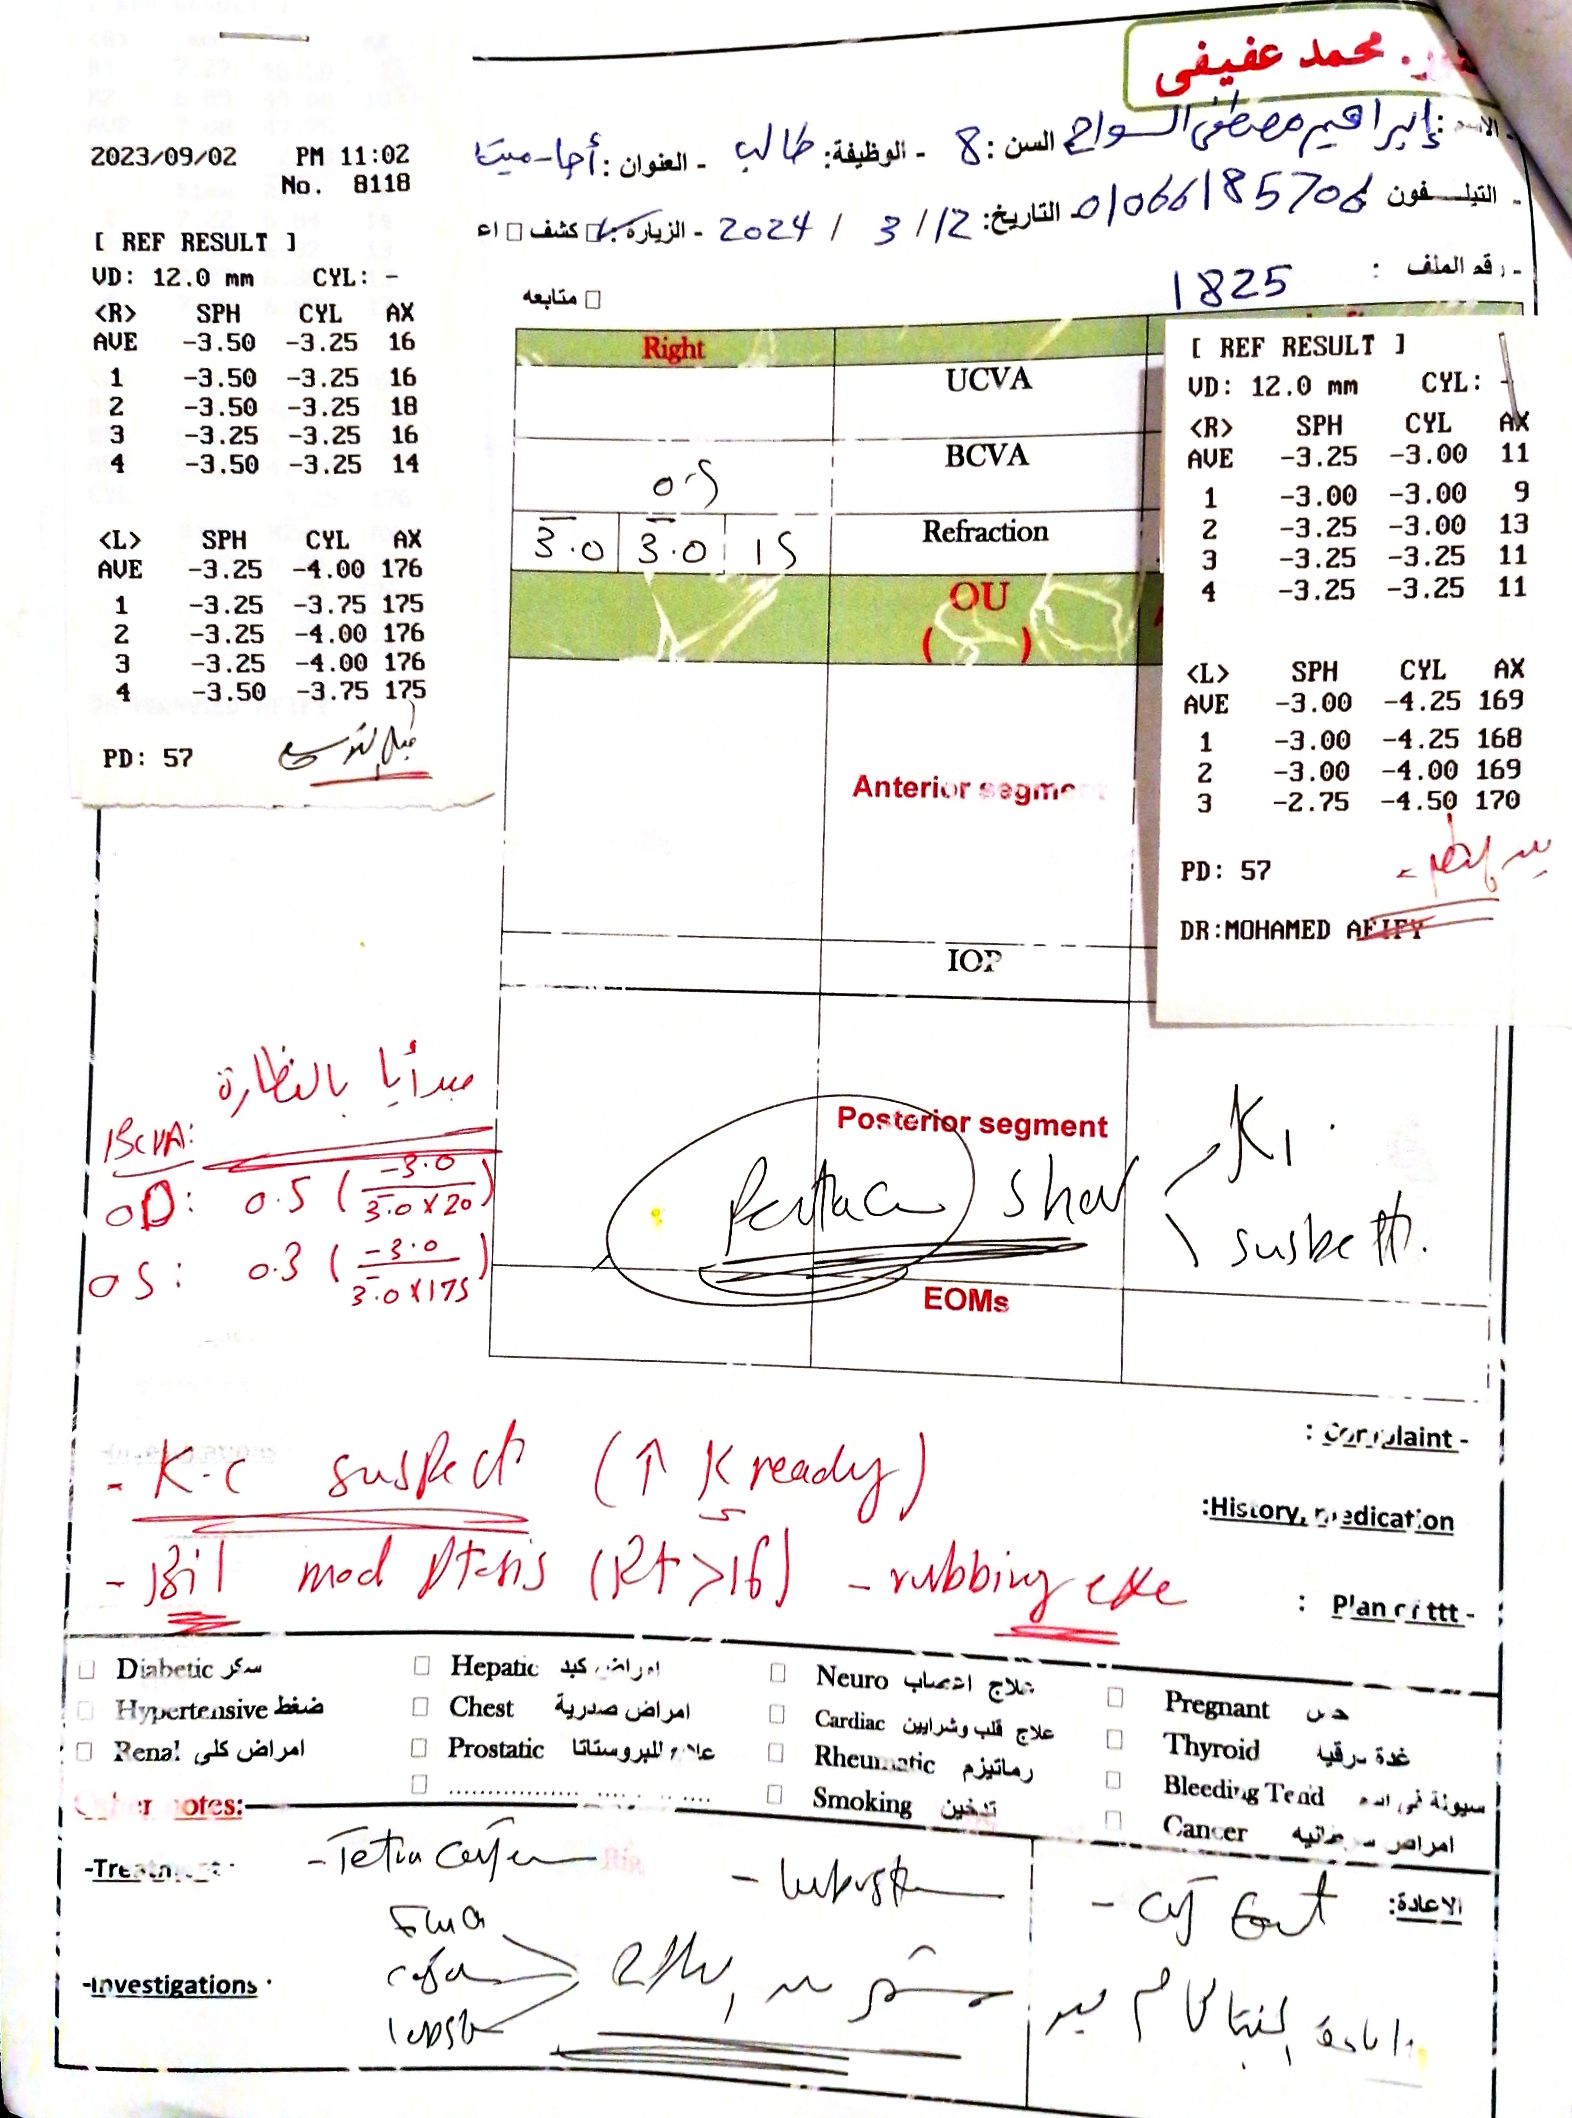 محمد عفيفى
الاسم: إبراهيم مصطفى السواح السن: 8 - الوظيفة: طالب - العنوان: أجا-ميت
- التيلـــفون 01066185706 التاريخ: 12/ 3 / 2024 - الزيارة: كشف
- رقم الملف : 1825
متابعه
2023/09/02 PM 11:02
No. 8118
[ REF RESULT ]
VD: 12.0 mm CYL: -
<R> SPH CYL AX
AVE -3.50 -3.25 16
1 -3.50 -3.25 16
2 -3.50 -3.25 18
3 -3.25 -3.25 16
4 -3.50 -3.25 14
<L> SPH CYL AX
AVE -3.25 -4.00 176
1 -3.25 -3.75 175
2 -3.25 -4.00 176
3 -3.25 -4.00 176
4 -3.50 -3.75 175
PD: 57
قبل التوسيع
Right
UCVA
BCVA
0.5
Refraction
-3.0 -3.0 15
OU
( )
Anterior segment
IOP
Posterior segment
Pentacam show K1.
suspect
EOMs
[ REF RESULT ]
VD: 12.0 mm CYL: -
<R> SPH CYL AX
AVE -3.25 -3.00 11
1 -3.00 -3.00 9
2 -3.25 -3.00 13
3 -3.25 -3.25 11
4 -3.25 -3.25 11
<L> SPH CYL AX
AVE -3.00 -4.25 169
1 -3.00 -4.25 168
2 -3.00 -4.00 169
3 -2.75 -4.50 170
PD: 57
DR:MOHAMED AFIFY
مبدأيا بالنظارة
BCVA:
OD: 0.5 (-3.0 / -3.0 x 20)
OS: 0.3 (-3.0 / -3.0 x 175)
: Complaint -
- K.C suspect (↑ K ready)
:History, medication
- Bil mod ptosis (Rt > lf) - rubbing eye
: Plan of ttt -
Diabetic سكر
Hepatic امراض كبد
Neuro علاج اعصاب
Pregnant
Hypertensive ضغط
Chest امراض صدرية
Cardiac علاج قلب وشرايين
Thyroid غدة درقيه
Renal امراض كلى
Prostatic علاج للبروستاتا
Rheumatic رماتيزم
Bleeding Tend سيولة فى الدم
Smoking تدخين
Cancer امراض سرطانيه
Other notes:
-Treatment:
الاعادة:
-Investigations: